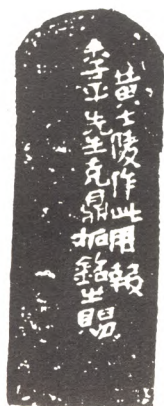 黃士陵作此用報
季平先生克鼎拓銘之賜